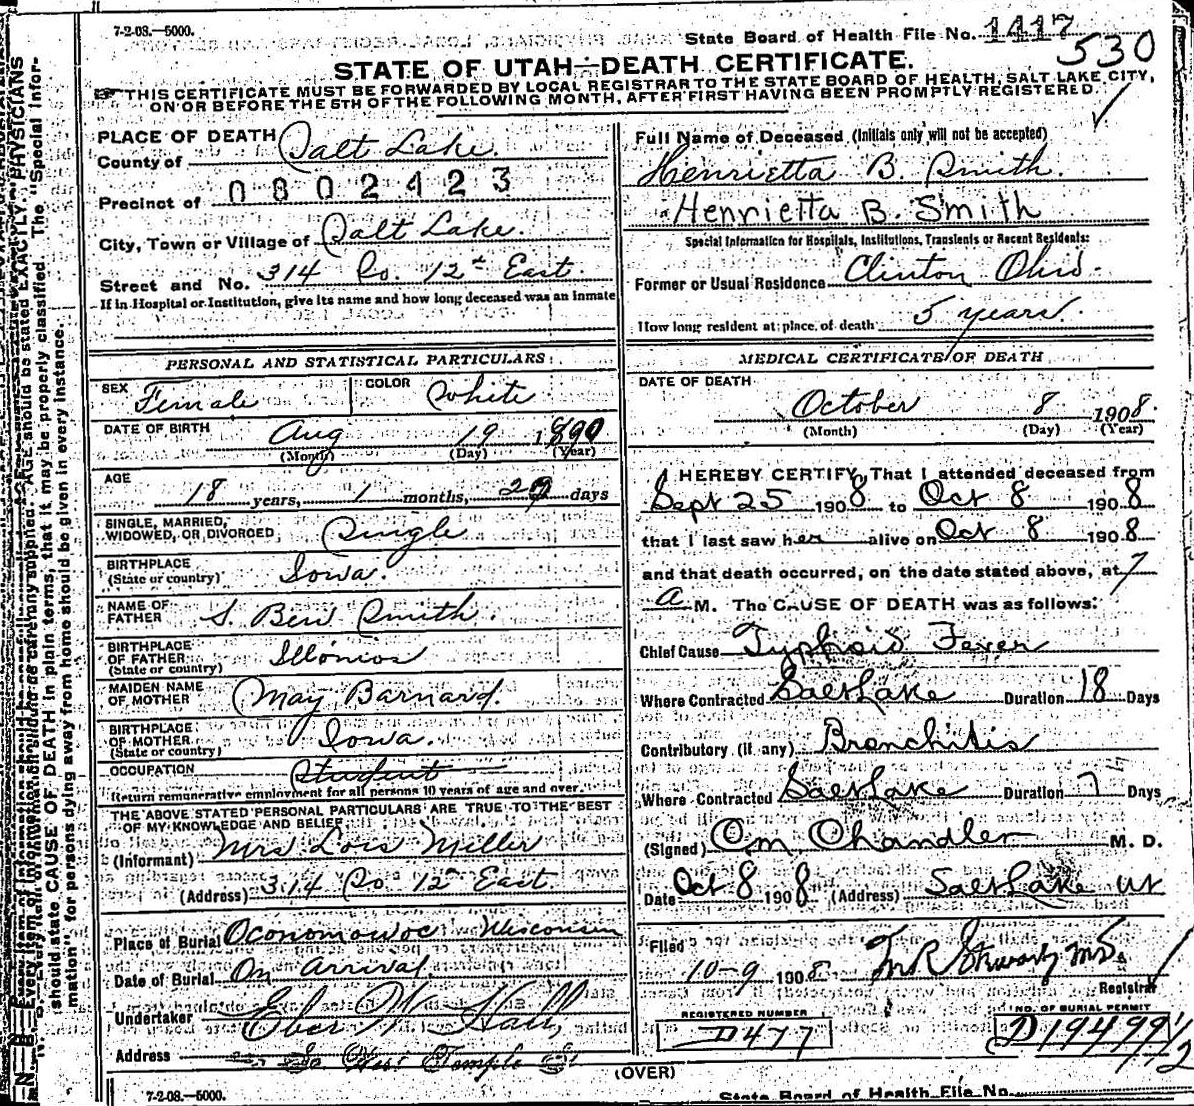 7-2-08.—5000.
State Board of Health File No. 1417
530
STATE OF UTAH—DEATH CERTIFICATE.
THIS CERTIFICATE MUST BE FORWARDED BY LOCAL REGISTRAR TO THE STATE BOARD OF HEALTH, SALT LAKE CITY,
ON OR BEFORE THE 5TH OF THE FOLLOWING MONTH, AFTER FIRST HAVING BEEN PROMPTLY REGISTERED.
PLACE OF DEATH
County of Salt Lake.
Precinct of 0802423
City, Town or Village of Salt Lake.
Street and No. 314 So. 12th East
If in Hospital or Institution, give its name and how long deceased was an inmate
Full Name of Deceased (Initials only will not be accepted)
Henrietta B. Smith.
Henrietta B. Smith
Special Information for Hospitals, Institutions, Transients or Recent Residents:
Former or Usual Residence Clinton Ohio.
How long resident at place of death 5 years.
PERSONAL AND STATISTICAL PARTICULARS
SEX Female COLOR White
DATE OF BIRTH Aug 19 1890
(Month) (Day) (Year)
AGE 18 years, 1 months, days
SINGLE, MARRIED,
WIDOWED, OR DIVORCED Single
BIRTHPLACE
(State or country) Iowa.
NAME OF
FATHER S. Ben Smith.
BIRTHPLACE
OF FATHER Illonios
(State or country)
MAIDEN NAME
OF MOTHER May Barnard.
BIRTHPLACE
OF MOTHER Iowa.
(State or country)
OCCUPATION Student
Return remunerative employment for all persons 10 years of age and over.
THE ABOVE STATED PERSONAL PARTICULARS ARE TRUE TO THE BEST
OF MY KNOWLEDGE AND BELIEF
(Informant) Mrs Lois Miller
(Address) 314 So 12th East.
Place of Burial Oconomowoc Wisconsin
Date of Burial On Arrival
Undertaker Eber W. Hall,
Address So West Temple St
MEDICAL CERTIFICATE OF DEATH
DATE OF DEATH
October 8 1908.
(Month) (Day) (Year)
I HEREBY CERTIFY, That I attended deceased from
Sept 25 1908 to Oct 8 1908
that I last saw her alive on Oct 8 1908
and that death occurred, on the date stated above, at 7
a M. The CAUSE OF DEATH was as follows:
Chief Cause Typhoid Fever
Where Contracted Salt Lake Duration 18 Days
Contributory (if any) Bronchitis
Where Contracted Salt Lake Duration 7 Days
(Signed) O m Chandler M. D.
Date Oct 8 1908 (Address) Salt Lake Ut
Filed
10-9 1908
Registrar
REGISTERED NUMBER
D477
NO. OF BURIAL PERMIT
D19499 1/2
(OVER)
7-2-08.—5000.
State Board of Health File No.
should state CAUSE OF DEATH in plain terms, that it may be properly classified. The "Special Infor-
mation" for persons dying away from home should be given in every instance.